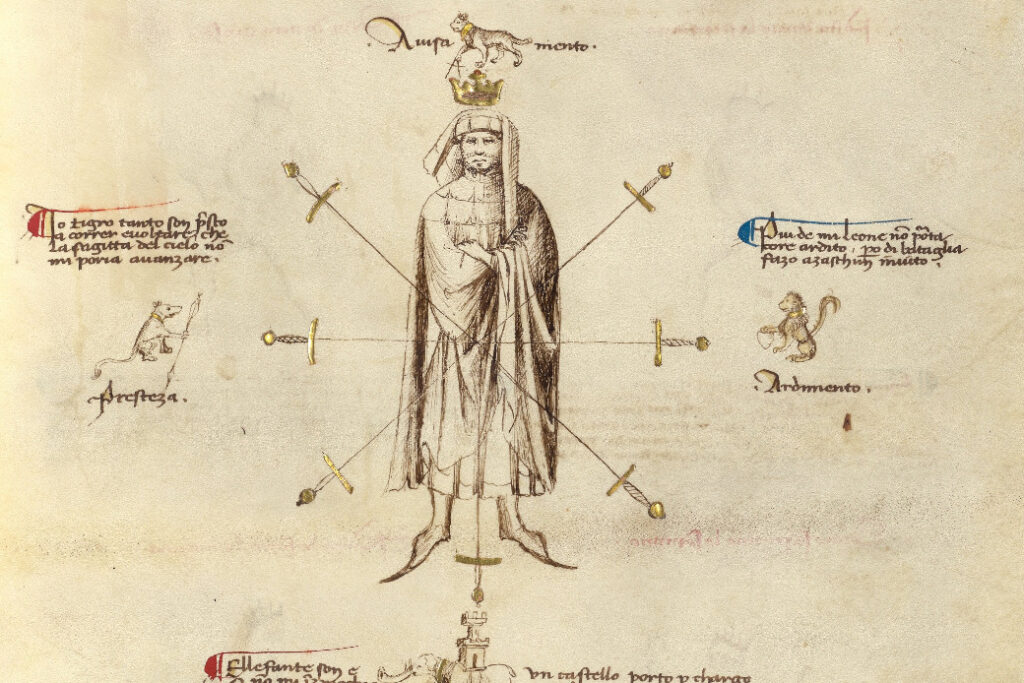 Auisa mento.
Io tigro tanto son p̃sto
a correr e uoltare, che
la sagitta del cielo nõ
mi poria auanzare.
Piu de mi leone nõ porta
core ardito, però di bataglia
fazo a zaschun inuito.
Presteza.
Ardimento.
Ellefante son e
un castello porto p chargo